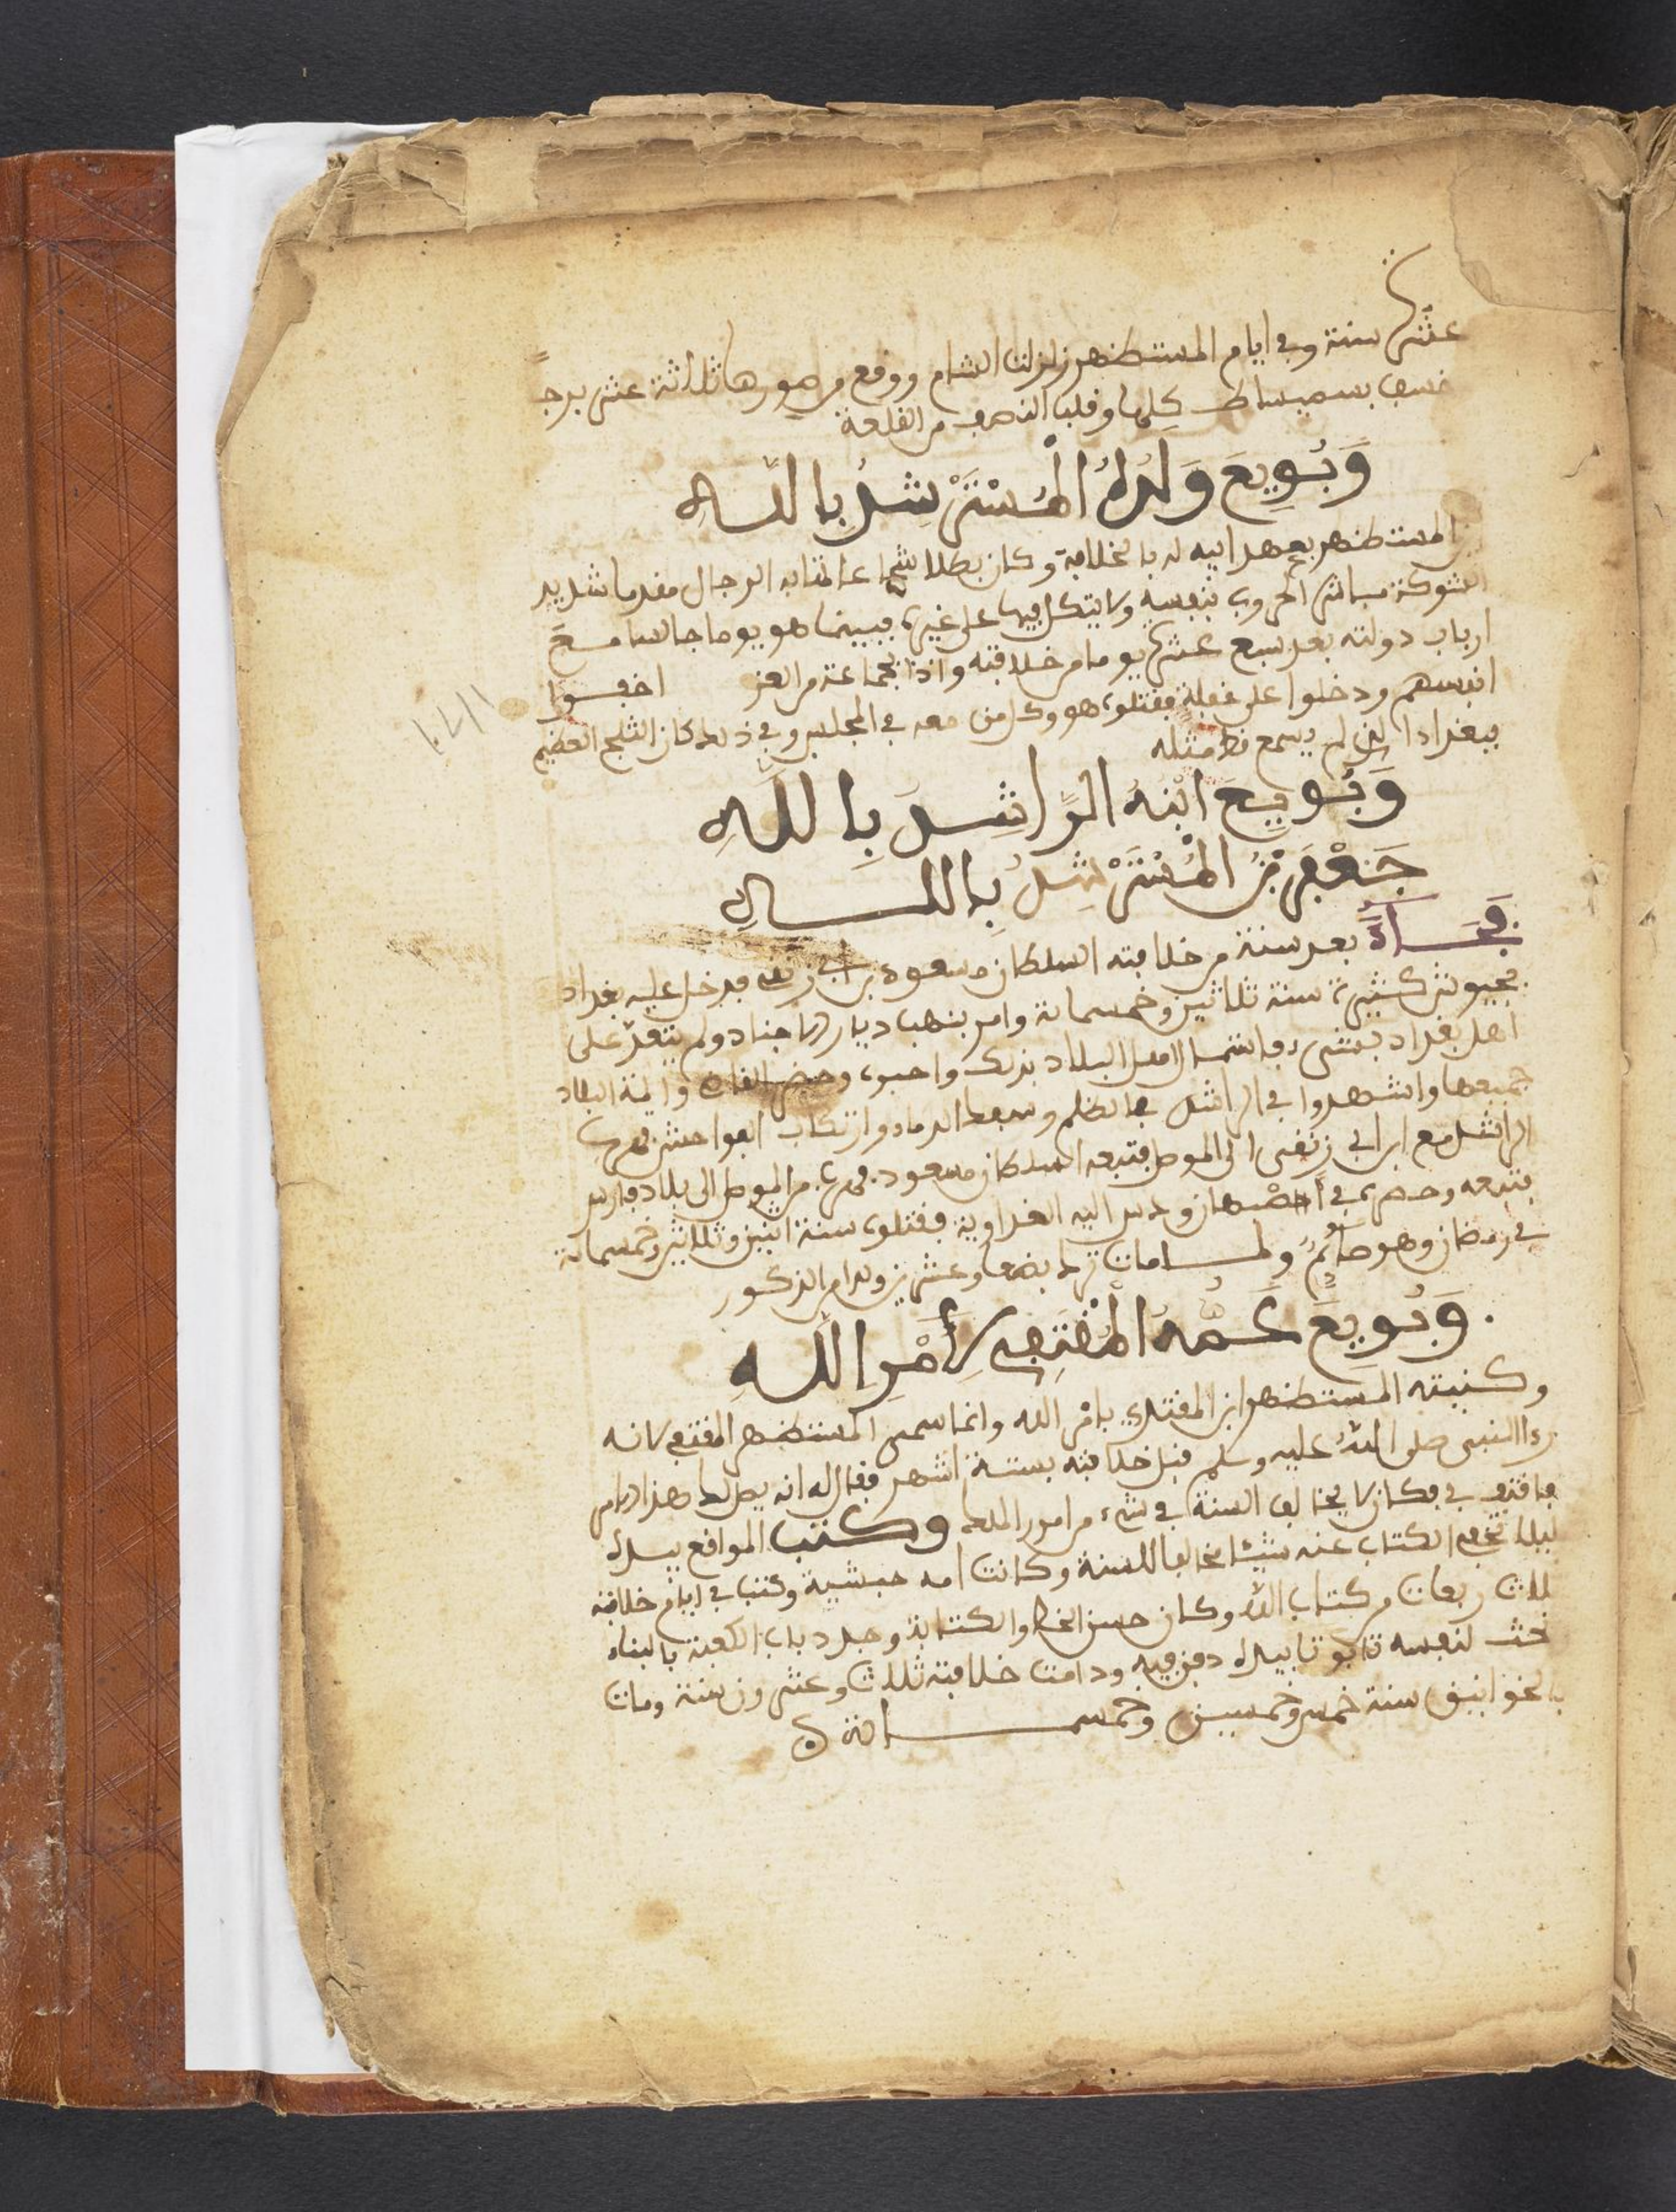 عشرة سنة وفي ايام المستظهر زلزلت الشام ووقع من سورها ثلاثة عشر برجا
خسف بسميساط كلها وقلب النصف من القلعة
وَبُويِعَ وَلَدُهُ الْمُسْتَرْشِدُ بِاللَّهِ
المستظهر بعهد ابيه له بالخلافة وكان بطلا شجاعا لا تشابه الرجال مقدما شديد
الشوكة مباشر الحروب بنفسه ولا يتكل فيها على غيره فبينما هو يوما جالسا مع
ارباب دولته بعد سبع عشرة يوما من خلافته واذا بجماعة من الغز اخفوا
انفسهم ودخلوا على غفلة فقتلوه هو وكل من معه في المجلس وفي ذلك كان الثلج العظيم
ببغداد الذي لم يسمع قط مثله
وَبُويِعَ ابْنُهُ الرَّاشِدُ بِاللَّهِ
جَعْفَرُ بْنُ الْمُسْتَرْشِدِ بِاللَّهِ
فجاءه بعد سنة من خلافته السلطان مسعود بن ابي زنفى فدخل عليه بغداد
بجيوش كثيرة سنة ثلاثين وخمسمائة وامر بنهب ديار الاجناد ولم يتعد على
اهل بغداد بشيء فاشتمل اهل البلاد بذلك واحبوه وحضر القضاة وائمة البلاد
جميعها واشهدوا في الراشد بالظلم وسفك الدماء وارتكاب الفواحش فهرب
الراشد مع ابن ابي زنفى الى الموصل فتبعه السلطان مسعود فهرب من الموصل الى بلاد فارس
فتبعه وحصره في اصبهان ودس اليه الفداوية فقتلوه سنة اثنين وثلاثين وخمسمائة
في رمضان وهو صائم ولما مات ترك بضعا وعشرين ولدا من الذكور
وَبُويِعَ عَمُّهُ الْمُقْتَفِي لِأَمْرِ اللَّهِ
وكنيته المستظهر ابن المقتدي بامر الله وانما سمي المستظهر المقتفي لانه
رءا النبي صلى الله عليه وسلم قبل خلافته بستة اشهر فقال له انه يصل لك هذا الامر
فاقتف بي فكان لا يخالف السنة في شيء من امور الملك وكتب المواقع بيده
ليلا تخرج الكتاب عنه شيئا مخالفا للسنة وكانت امه حبشية وكتب في ايام خلافته
ثلاث ربعات من كتاب الله وكان حسن الخط والكتابة وجدد باب الكعبة بالبناء
نحت لنفسه تابوتا بيده دفن فيه ودامت خلافته ثلاث وعشرون سنة ومات
بالخوانيق سنة خمس وخمسين وخمسمائة